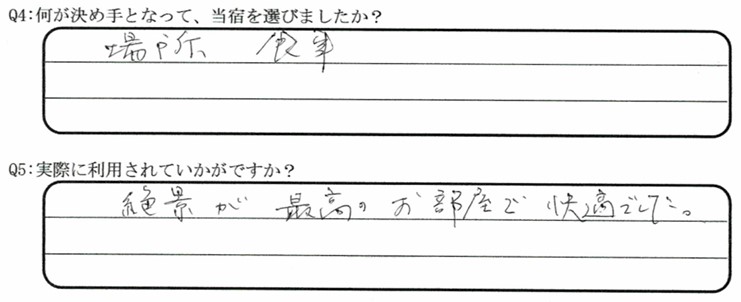 Q4:何が決め手となって、当宿を選びましたか？
場所、食事
Q5:実際に利用されていかがですか？
絶景が最高のお部屋で快適でした。